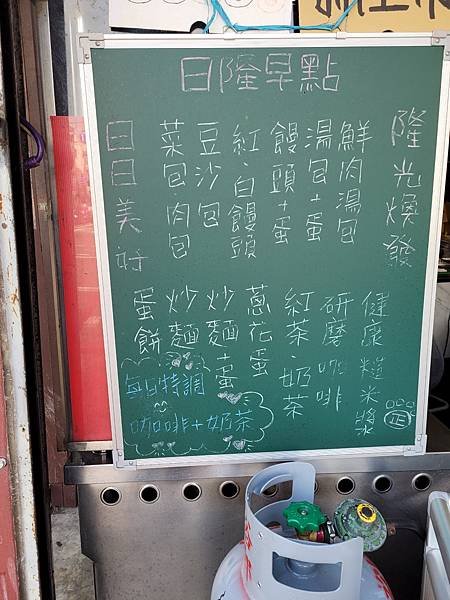 日隆早點
隆光煥發
鮮肉湯包
湯包+蛋
饅頭+蛋
紅.白饅頭
豆沙包
菜包肉包
日日美好
健康糙米漿
研磨咖啡
紅茶.奶茶
蔥花蛋
炒麵+蛋
炒麵
蛋餅
每日特調
咖啡+奶茶
正